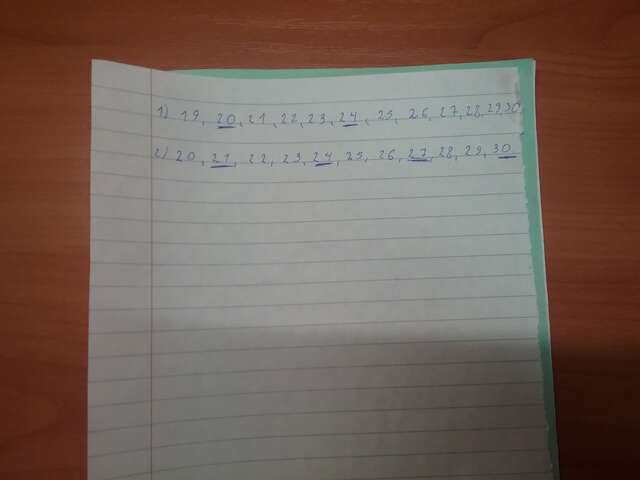 1) 19, 20, 21, 22, 23, 24, 25, 26, 27, 28, 29, 30
2) 20, 21, 22, 23, 24, 25, 26, 27, 28, 29, 30